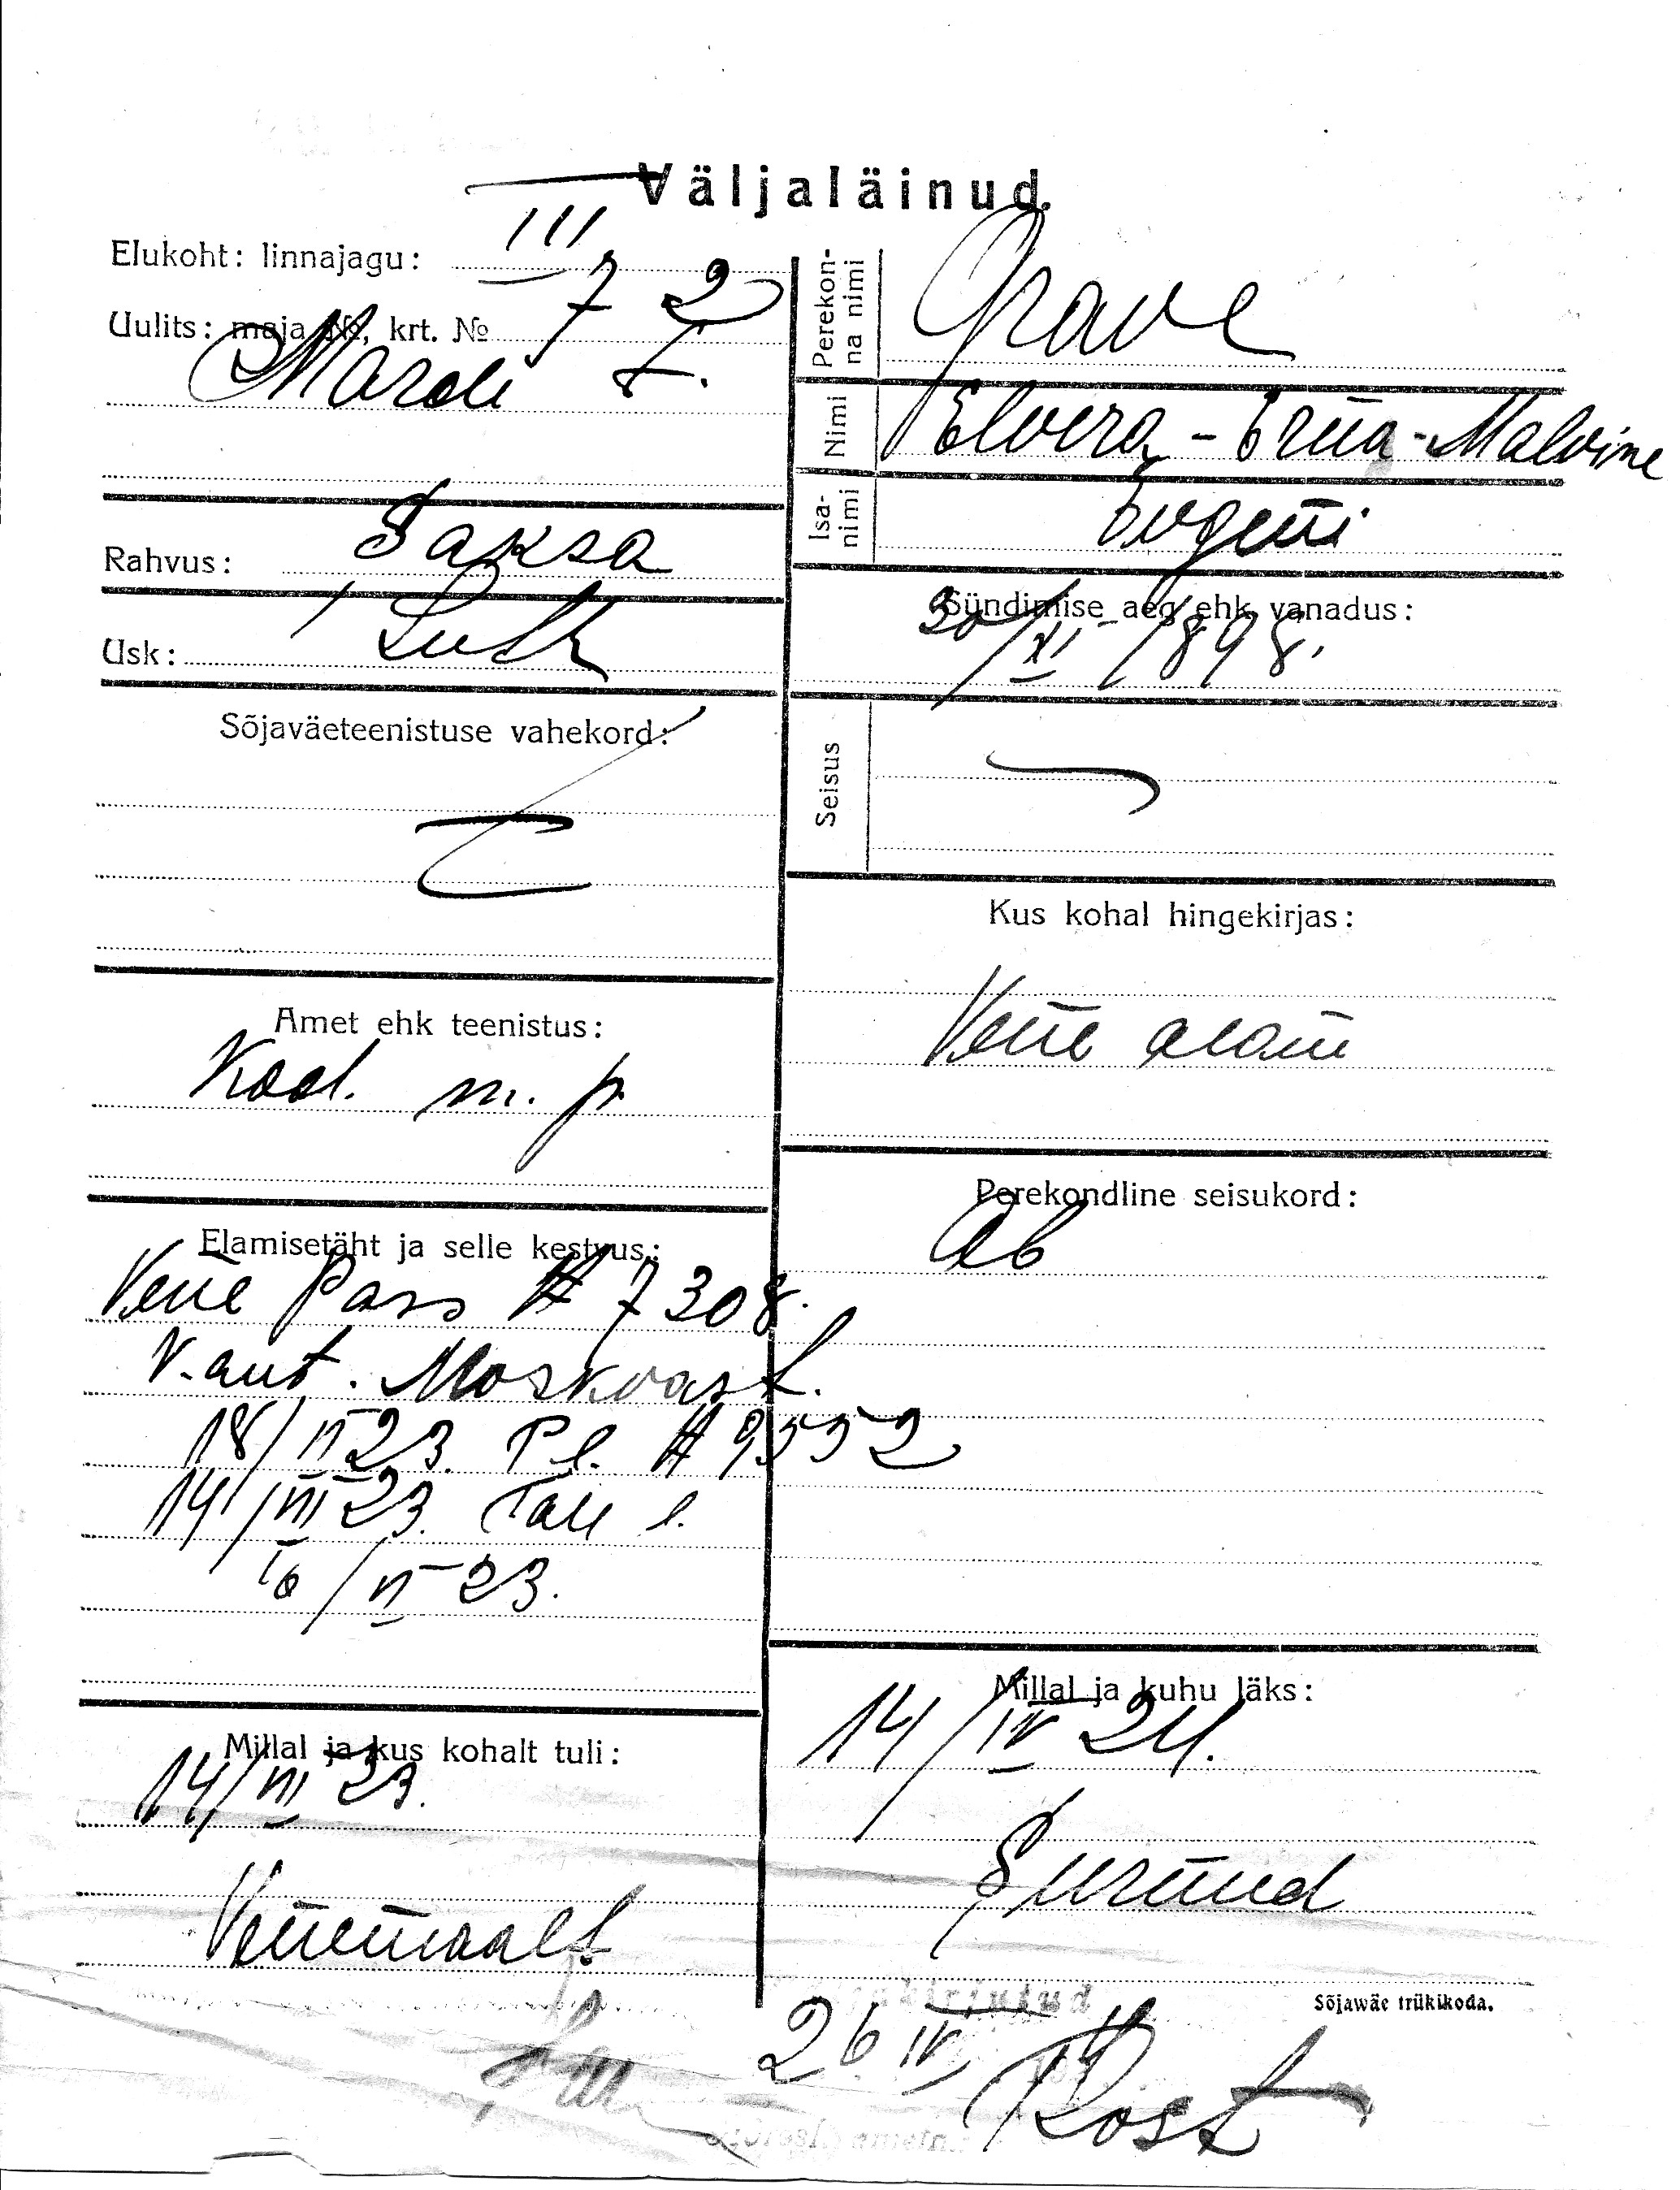 Väljaläinud.
Elukoht: linnajagu: III
Uulits: maja №, krt. № 7 2
Mardi t.
Rahvus: Saksa
Usk: Luth
Sõjaväeteenistuse vahekord:
Amet ehk teenistus:
Kod. m. p
Elamisetäht ja selle kestvus:
Vene Pass № 7308.
V. ant. Moskvast.
18/VI 23. P.l. № 9552
14/VII 23. Tall l.
16/VI 23.
Millal ja kus kohalt tuli:
14/VII 23.
Venemaalt
Perekonna nimi Grave
Nimi Elvira-Erna-Malvine
Isanimi Evgeni
Sündimise aeg ehk vanadus:
30/XI 1898.
Seisus
Kus kohal hingekirjas:
Vene alam
Perekondline seisukord:
Ab
Millal ja kuhu läks:
14/IV 24.
Surnud
Sõjawäe trükikoda.
26 IV
Kost